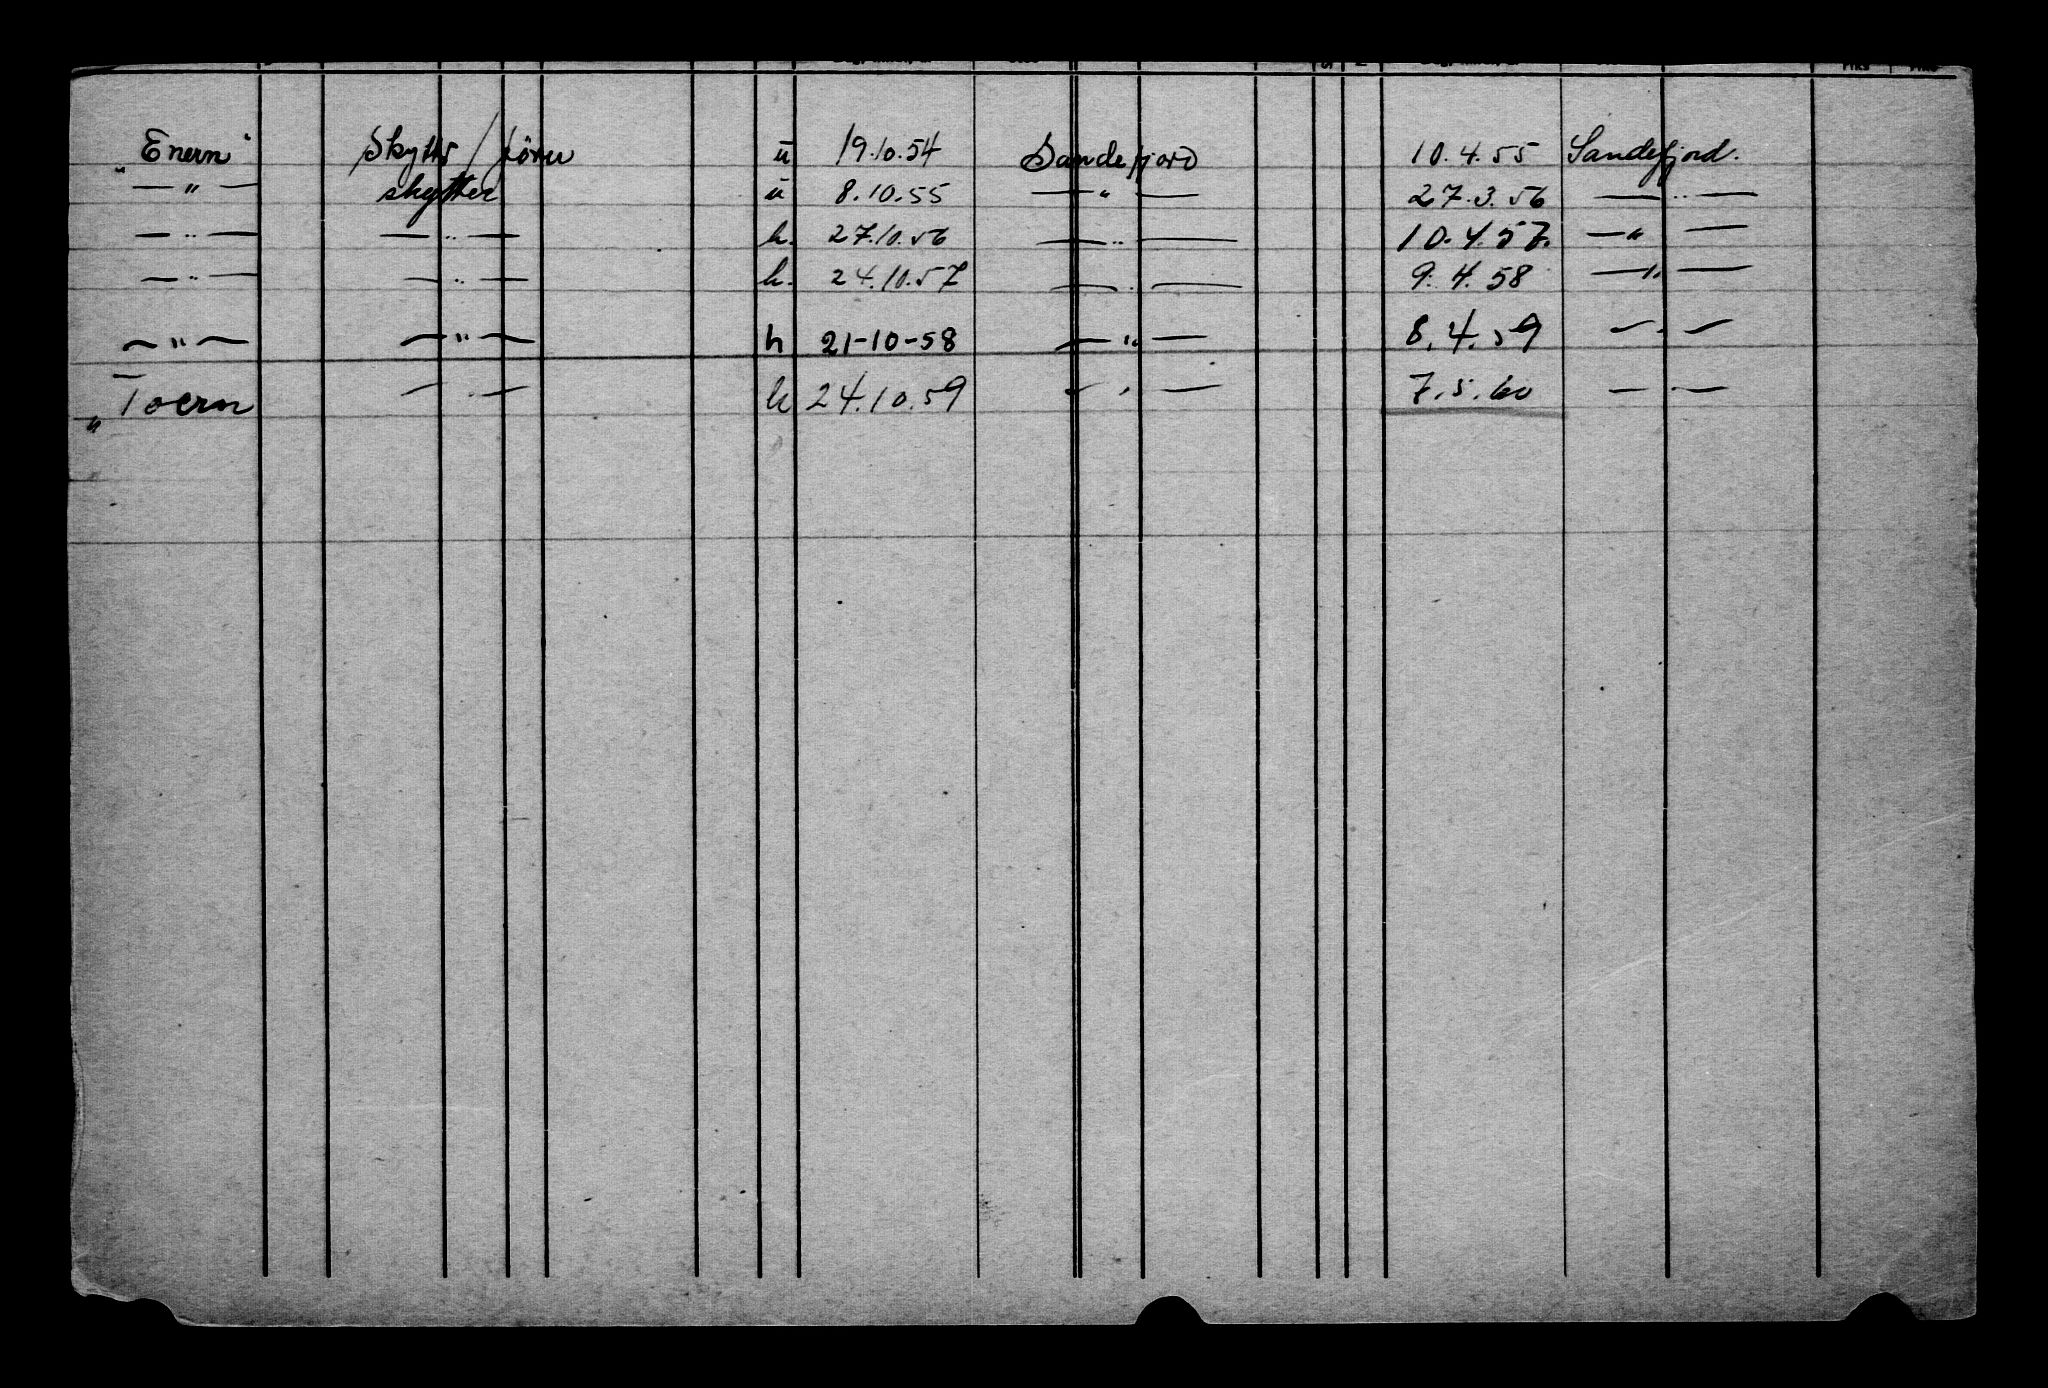 "Enern" Skytter / fører u 19.10.54 Sandefjord 10.4.55 Sandefjord.
— " — skytter u 8.10.55 — " — 27.3.56 — " —
— " — — " — h. 27.10.56 — " — 10.4.57. — " —
— " — — " — h. 24.10.57 — " — 9.4.58 — " —
— " — — " — h 21-10-58 — " — 8.4.59 — " —
"Toern — " — h 24.10.59 — " — 7.5.60 — " —